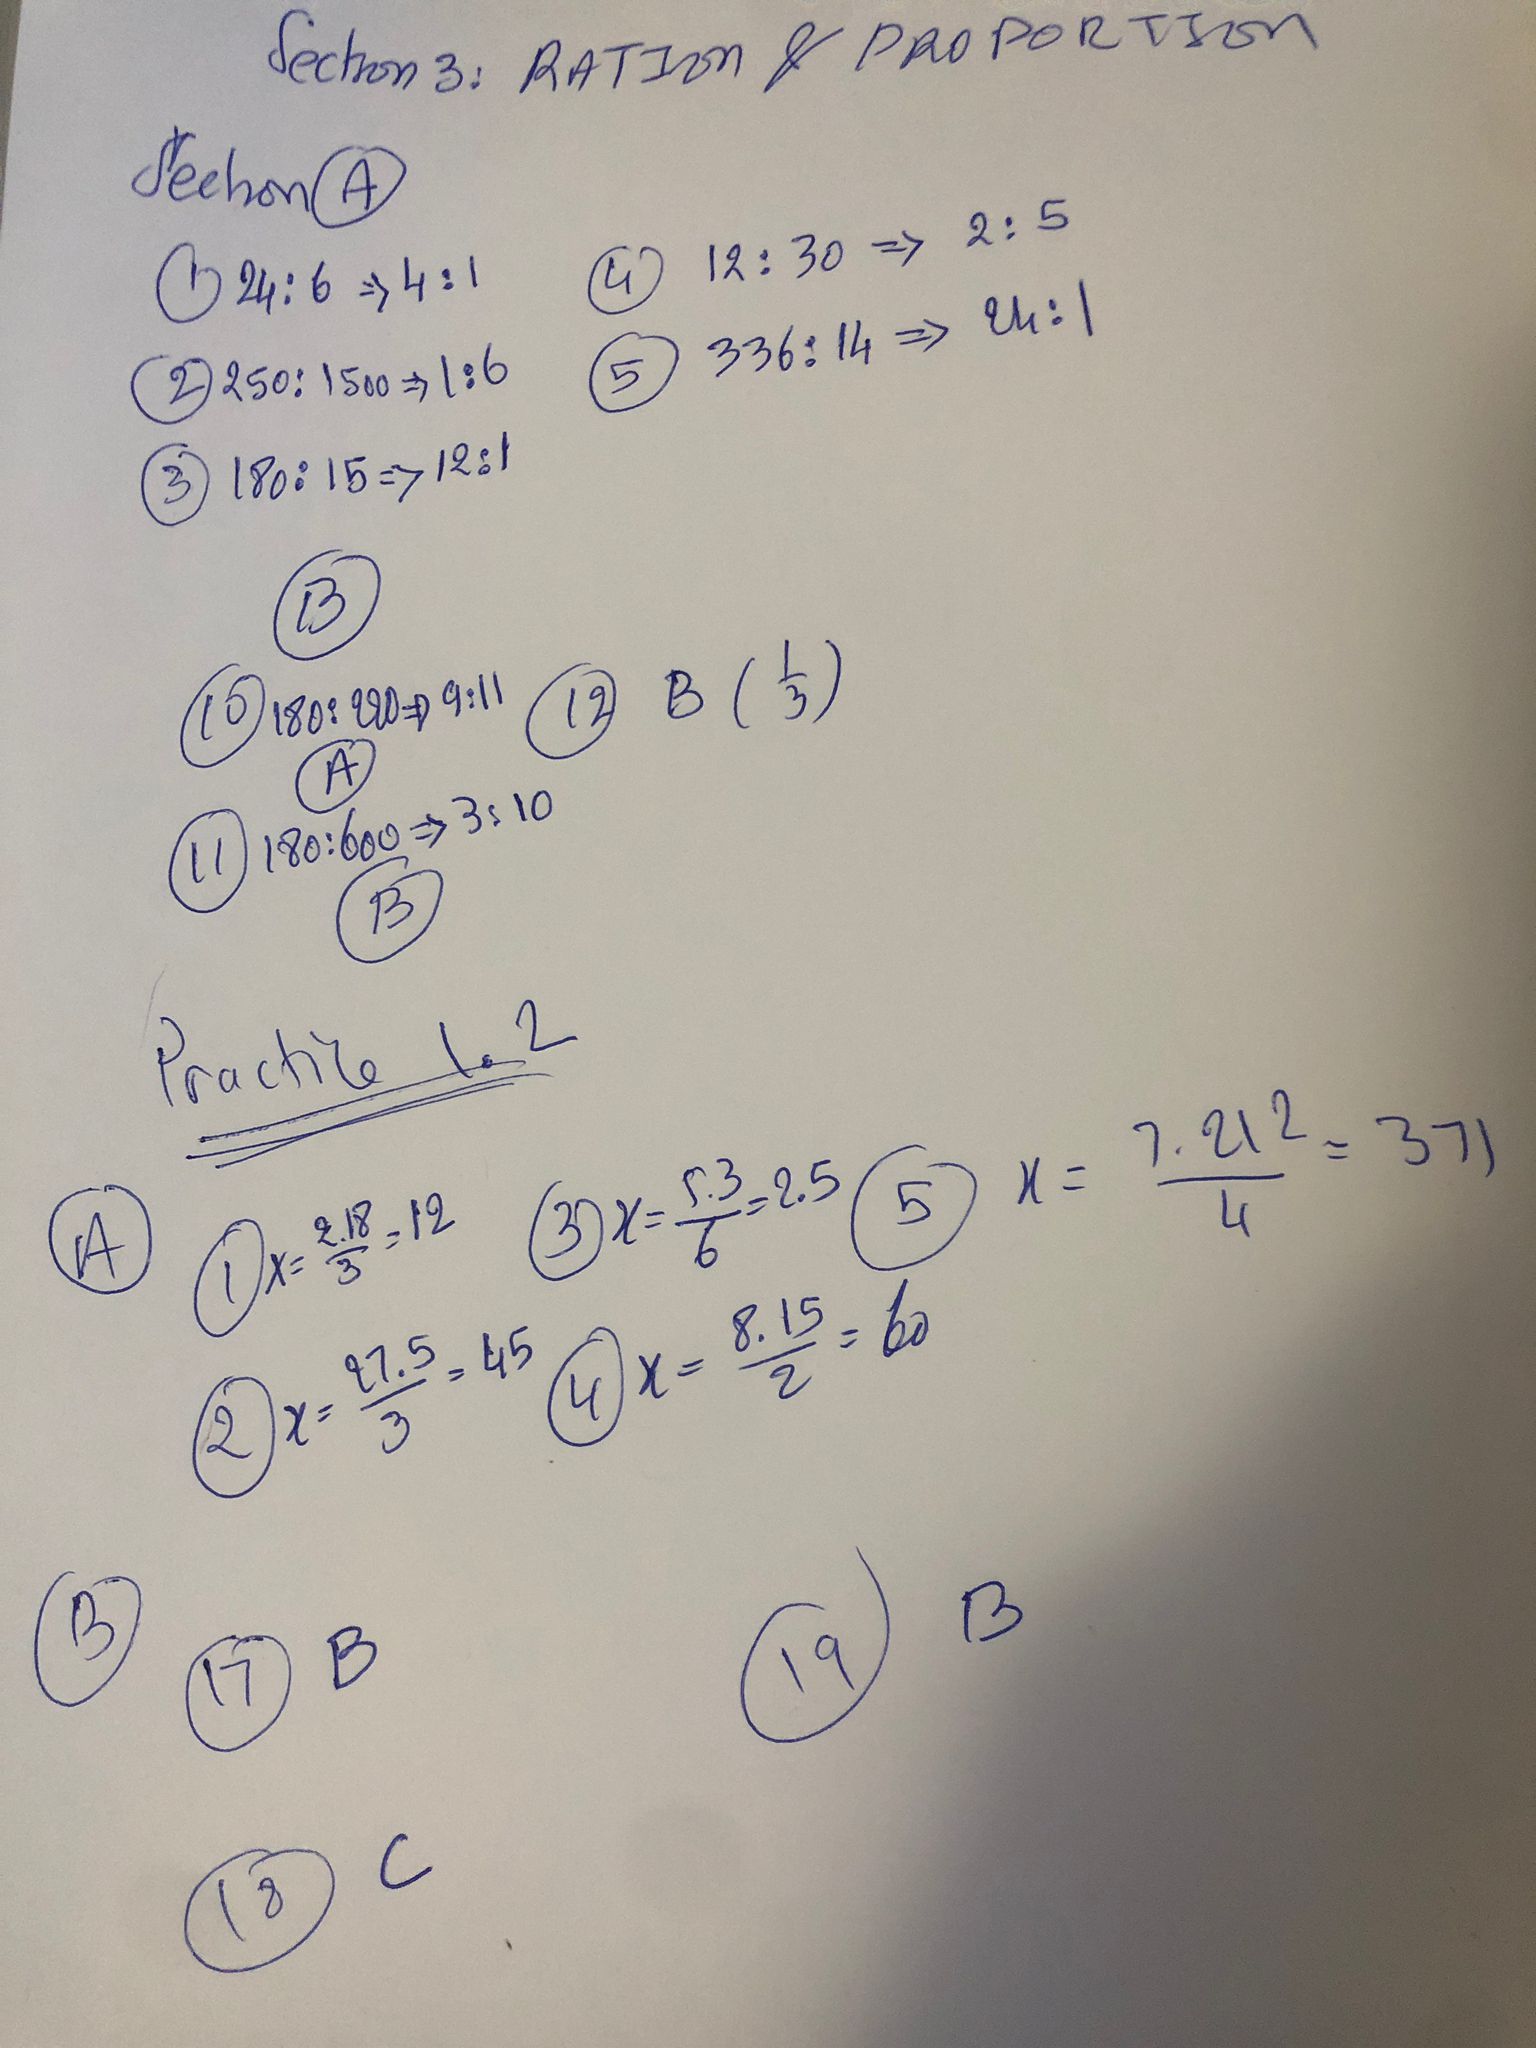 Section 3: RATION & PROPORTION
Section A
1 24:6 => 4:1
2 250:1500 => 1:6
3 180:15 => 12:1
4 12:30 => 2:5
5 336:14 => 24:1
B
10 180:220 => 9:11
A
11 180:600 => 3:10
B
12 B (1/3)
Practice 1.2
A
1 x = 2.18/3 = 12
2 x = 27.5/3 = 45
3 x = 5.3/6 = 2.5
4 x = 8.15/2 = 60
5 x = 7.212/4 = 371
B
17 B
18 C
19 B